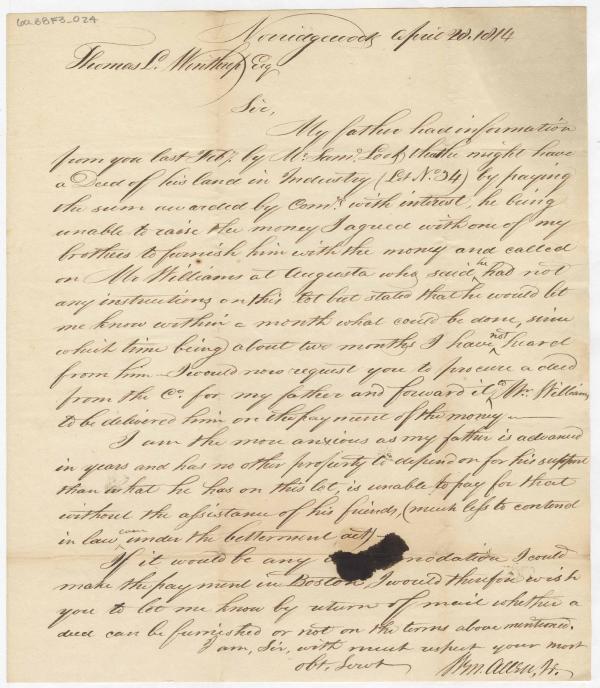 6a88F3_024
Norridgewock April 28. 1814
Thomas L. Winthrop Esq
Sir,
My father had information
from you last Feby. by Mr. Saml. Lock, that he might have
a Deed of his land in Industry (Lot No. 34) by paying
the sum awarded by Comrs. with interest, he being
unable to raise the money I agreed with one of my
brothers to furnish him with the money and called
on Mr Williams at Augusta who said he had not
any instructions on this lot but stated that he would let
me know within a month what could be done, since
which time being about two months I have not heard
from him—I would now request you to procure a deed
from the Co. for my father and forward it to Mr. Williams
to be delivered him on the payment of the money—
I am the more anxious as my father is advanced
in years and has no other property to depend on for his support
than what he has on this lot, is unable to pay for that
without the assistance of his friends, (much less to contend
in law even under the betterment act)—
If it would be any modation I could
make the payment in Boston I would therefore wish
you to let me know by return of mail whether a
deed can be furnished or not on the terms above mentioned.
I am, Sir, with much respect your most
obt. Servt Wm. Allen, Jr.